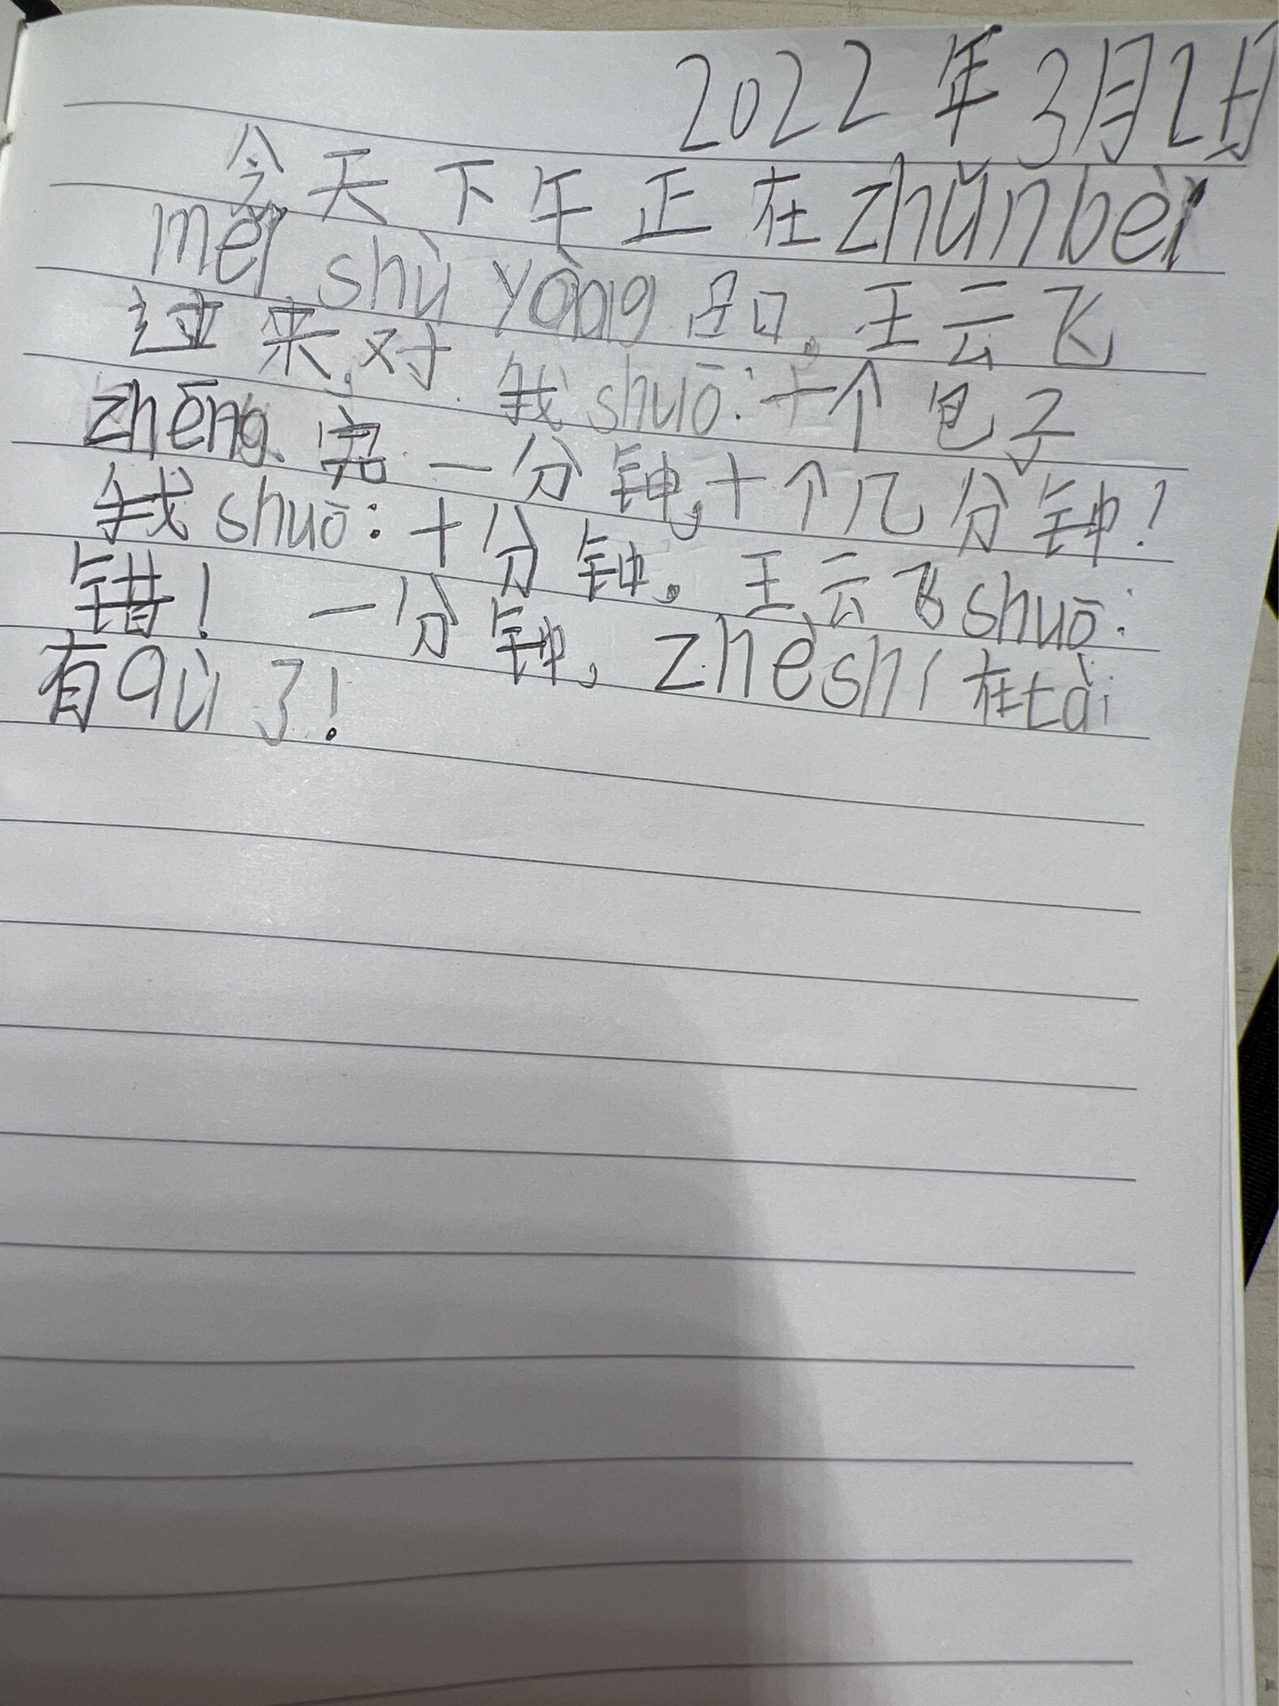 2022年3月2日
今天下午正在zhǔnbèi
měi shù yòng品。王云飞
过来,对我shuō:十个包子
zhēng 完一分钟,十个几分钟!
我shuō:十分钟。王云飞shuō:
错!一分钟。zhèshí在tài
有qù了!